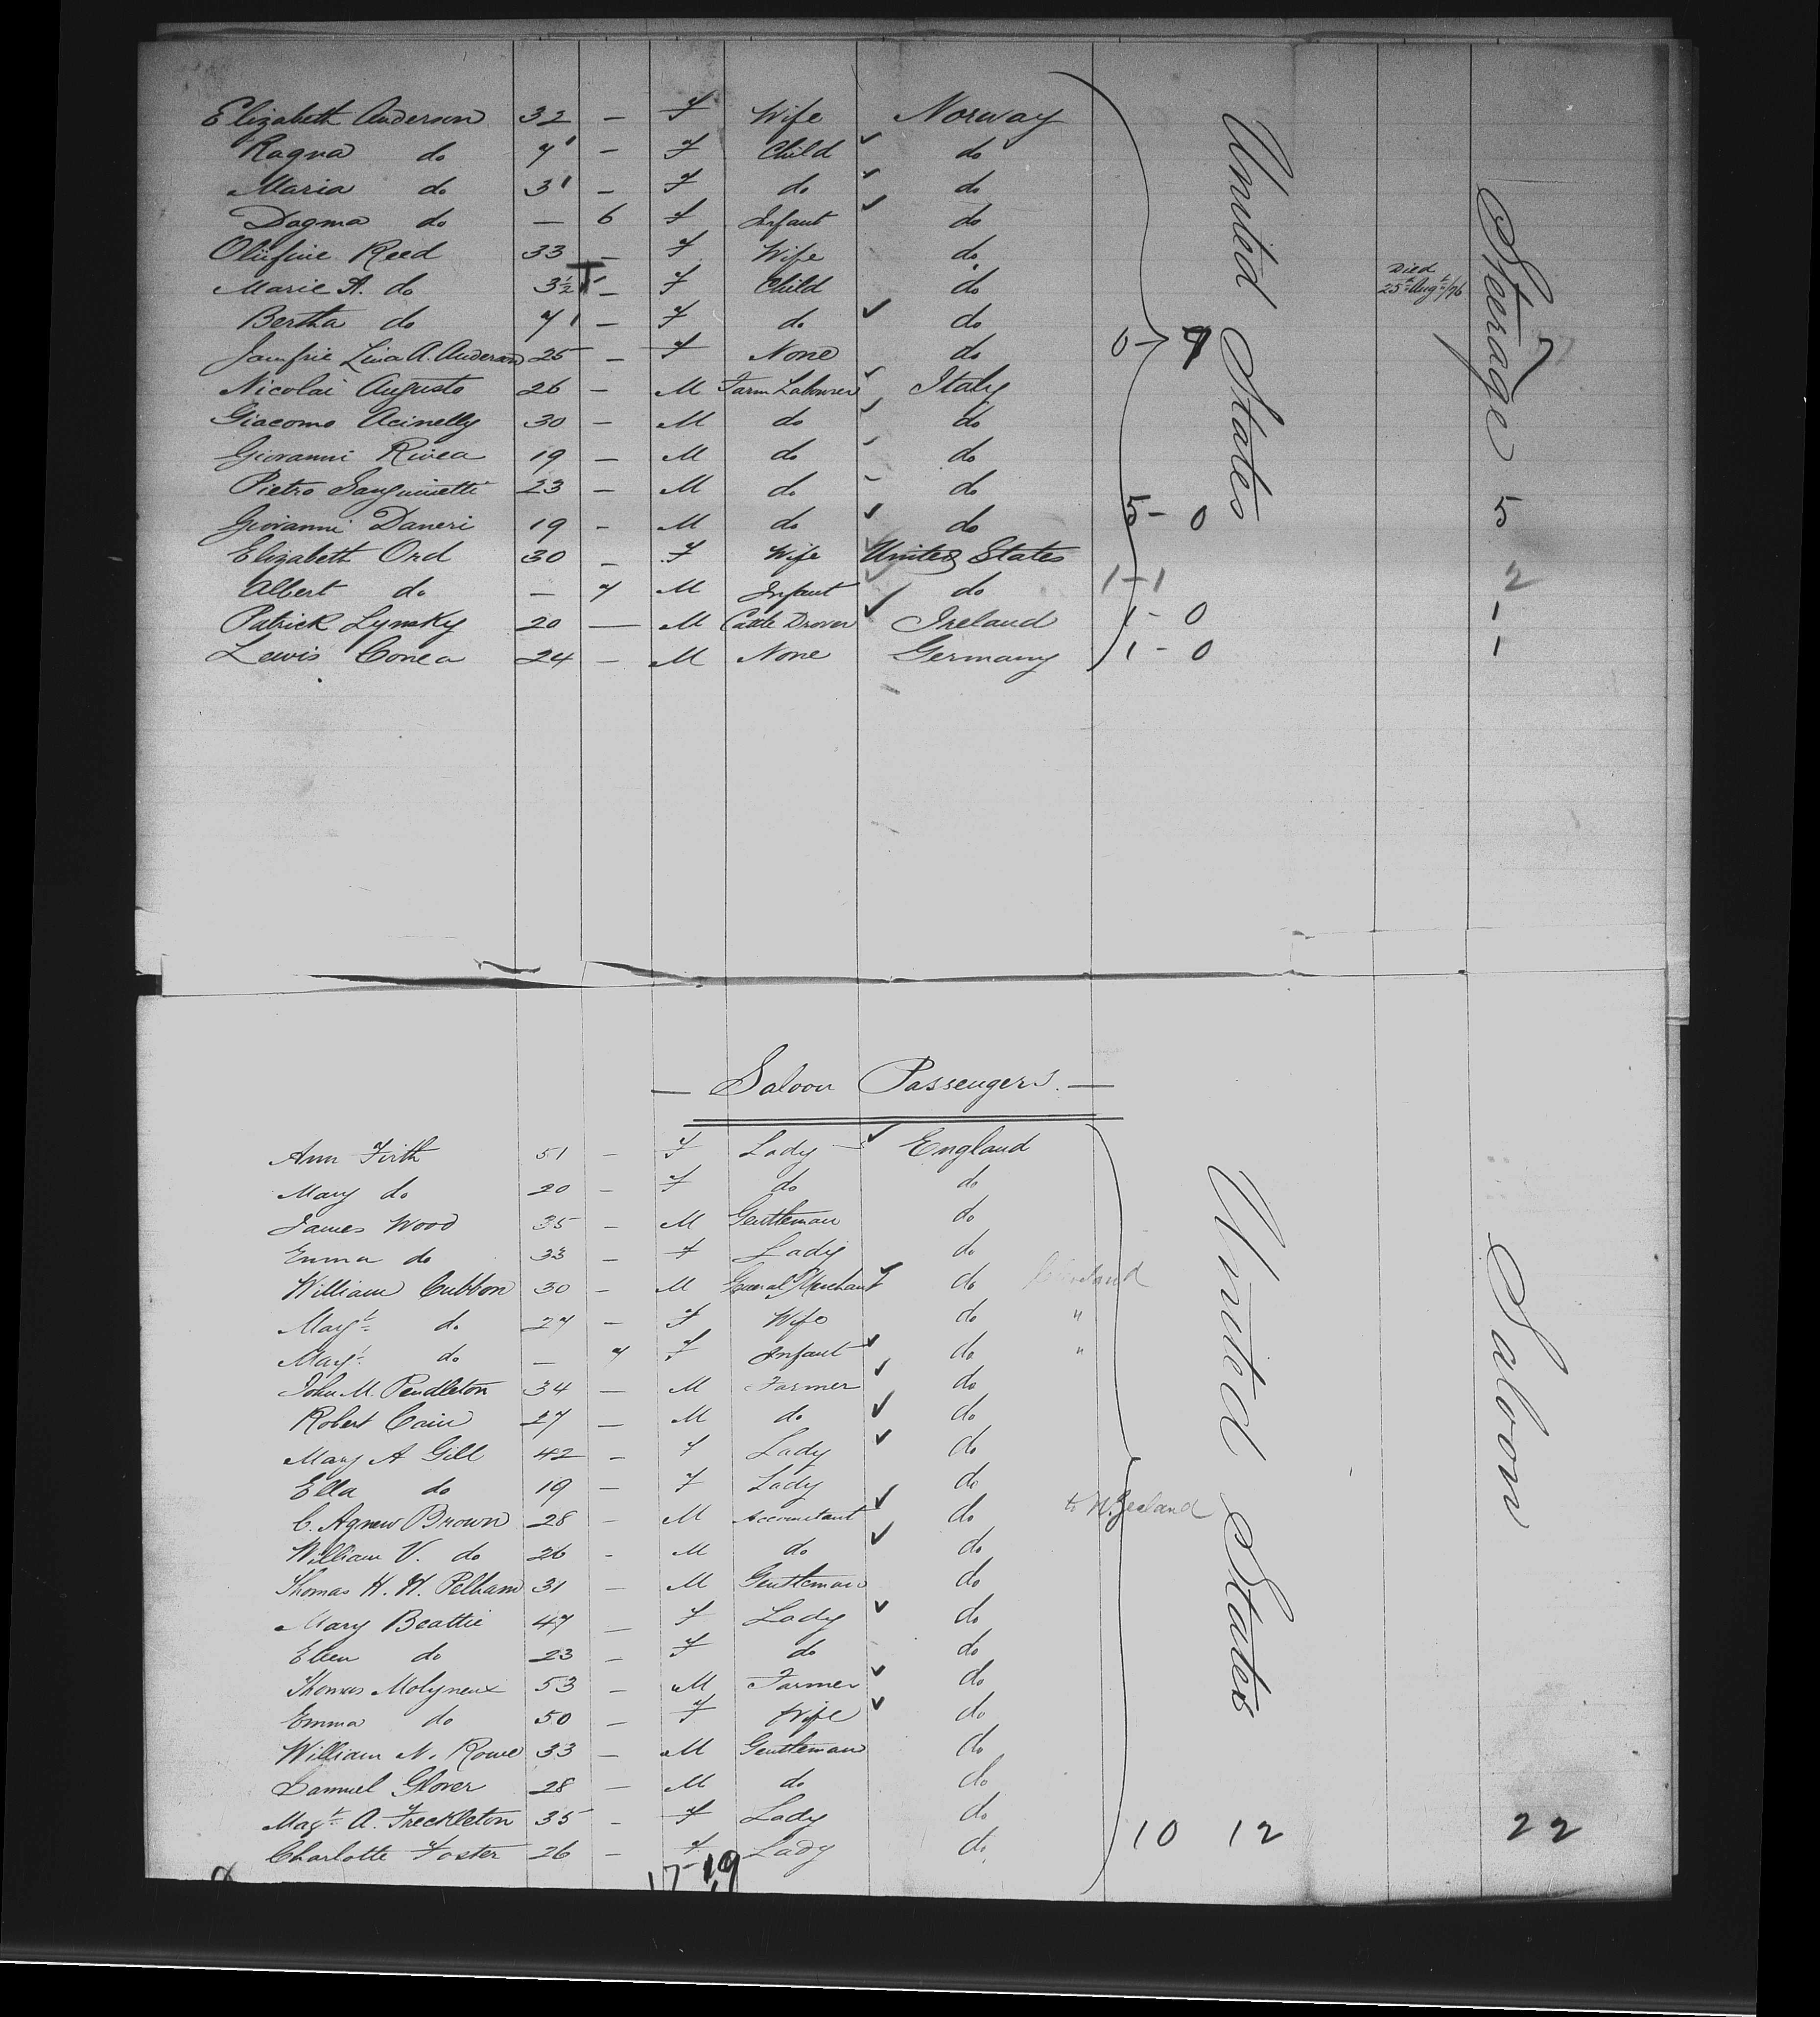 Elizabeth Anderson 32 — F Wife Norway
Ragna do 7 — F Child do
Maria do 3 — F do do
Dagma do — 6 F Infant do
Reed 33 — F Wife do
Marie A. do 3½ — F Child do Died 25th Augt/76
Bertha do 7 — F do do
Lina A. Anderson 25 — F None do 0 - 7 7
Nicolai Augusto 26 — M Farm Labourer Italy
Giacomo Acinelly 30 — M do do
Giovanni Rivea 19 — M do do
Pietro Sanguinetti 23 — M do do
Giovanni Daneri 19 — M do do 5 - 0 5
Elizabeth Ord 30 — F Wife United States
Albert do — 7 M Infant do 1 - 1 2
Patrick Lynsky 20 — M Cattle Drover Ireland 1 - 0 1
Lewis Conea 24 — M None Germany 1 - 0 1
United States
Steerage
— Saloon Passengers. —
Ann Firth 51 — F Lady England
Mary do 20 — F do do
James Wood 35 — M Gentleman do
Emma do 33 — F Lady do
William Cubbon 30 — M General Merchant do
Margt do 27 — F Wife do "
Margt do — 7 F Infant do "
John M. Pendleton 34 — M Farmer do
Robert Cain 27 — M do do
Mary A Gill 42 — F Lady do
Ella do 19 — F Lady do
C. Agnew Brown 28 — M Accountant do to N. Zealand
William V. do 26 - M do do
Thomas H. H. Pelham 31 — M Gentleman do
Mary Beattie 47 — F Lady do
Ellen do 23 — F do do
Thomas Molyneux 53 — M Farmer do
Emma do 50 — F Wife do
William N. Rowe 33 — M Gentleman do
Samuel Glover 28 — M do do
Magt A. Freckleton 35 — F Lady do 10 12 22
Charlotte Foster 26 — F Lady do
17-19
United States
Saloon